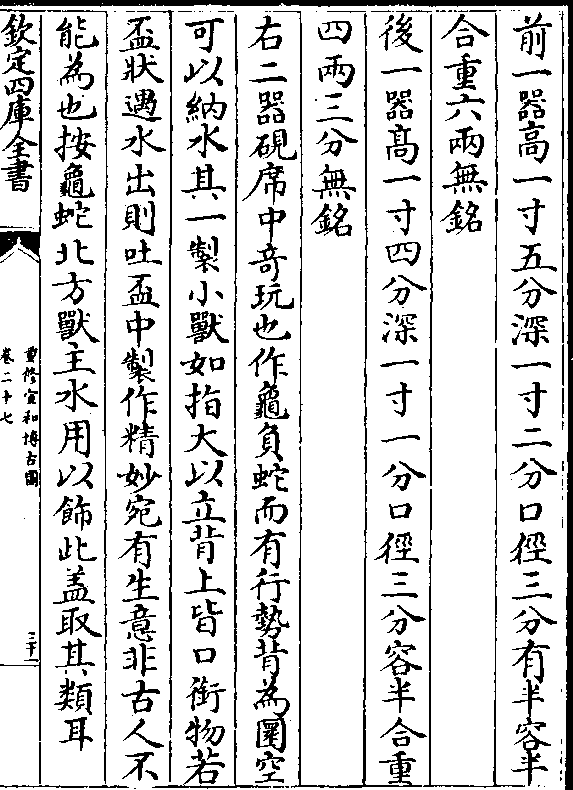 前一器高一寸五分深一寸二分口徑三分有半容半
合重六兩無銘
後一器髙一寸四分深一寸一分口徑三分容半合重
四兩三分無銘
右二器硯席中竒玩也作龜負蛇而有行勢背為圜空
可以納水其一製小獸如指大以立背上皆口銜物若
盃狀遇水出則吐盃中製作精妙宛有生意非古人不
能為也按龜蛇北方獸主水用以飾此盖取其類耳
欽定四庫全書
重修宣和博古圖
卷二十七
三十一